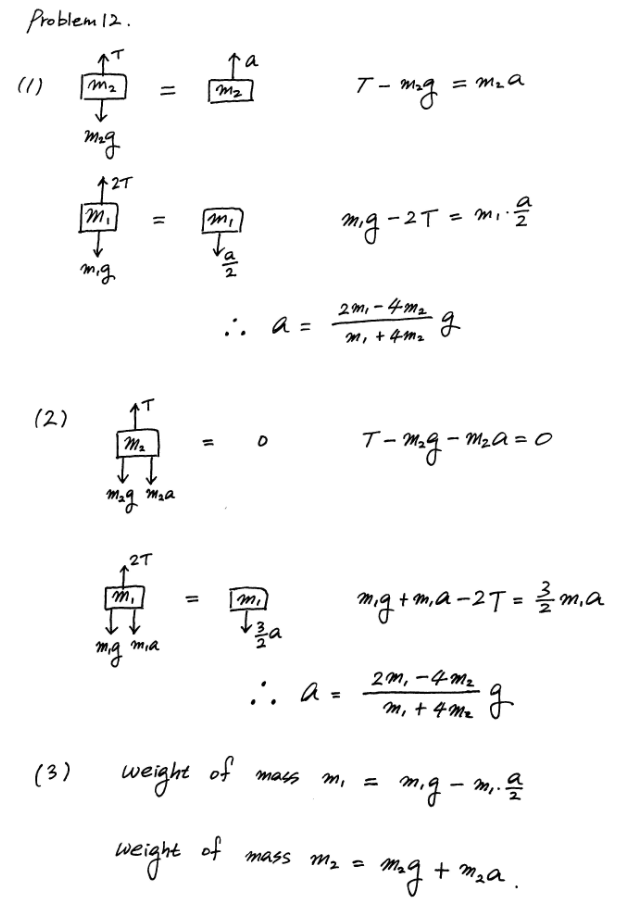 Problem 12.
(1) T m₂ m₂g = a m₂ T - m₂g = m₂a
2T m₁ m₁g = m₁ a/2 m₁g - 2T = m₁·a/2
∴ a = (2m₁ - 4m₂)/(m₁ + 4m₂) g
(2) T m₂ m₂g m₂a = 0 T - m₂g - m₂a = 0
2T m₁ m₁g m₁a = m₁ 3/2 a m₁g + m₁a - 2T = 3/2 m₁a
∴ a = (2m₁ - 4m₂)/(m₁ + 4m₂) g
(3) weight of mass m₁ = m₁g - m₁·a/2
weight of mass m₂ = m₂g + m₂a.